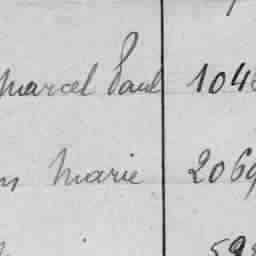 Marcel Paul 104
Marie 206
59